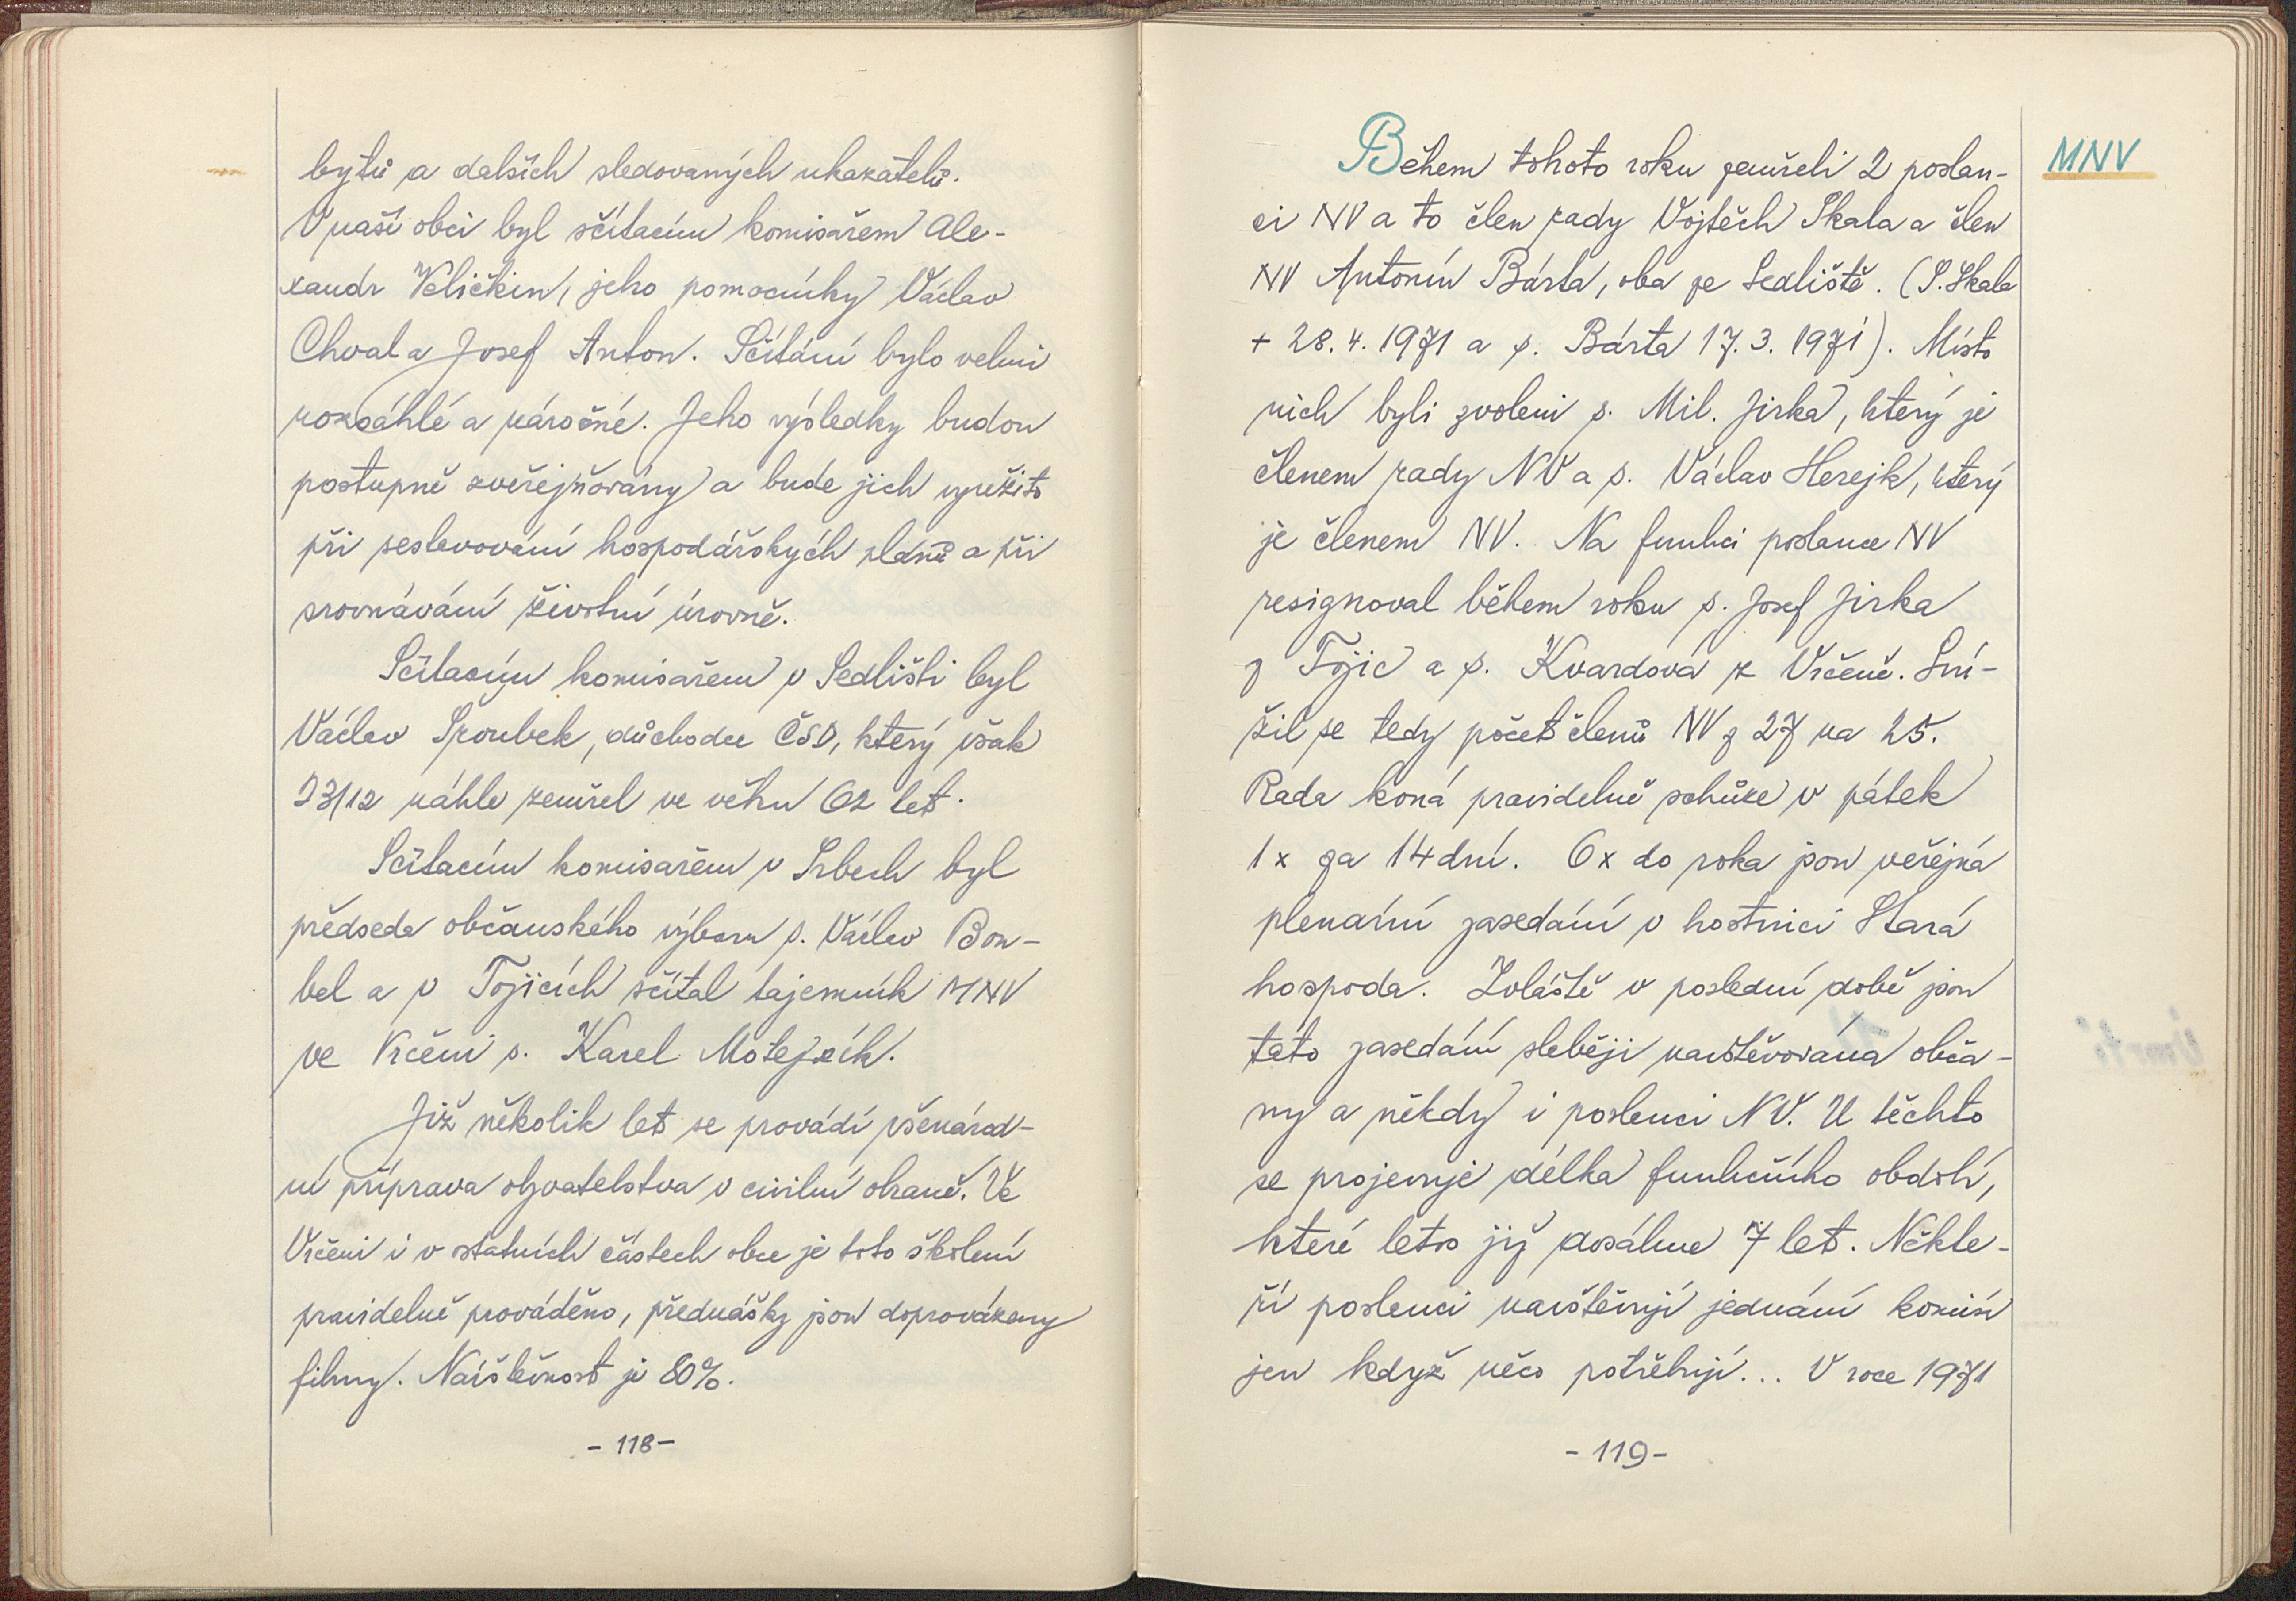 bytů a dalších sledovaných ukazatelů.
V naší obci byl sčítacím komisařem Ale-
xandr Veličkin, jeho pomocníky Václav
Chval a Josef Anton. Sčítání bylo velmi
rozsáhlé a náročné. Jeho výsledky budou
postupně zveřejňovány a bude jich využito
při sestavování hospodářských plánů a při
srovnávání životní úrovně.
Sčítacím komisařem v Sedlišti byl
Václav Sroubek, důchodce ČSD, který však
23/12 náhle zemřel ve věku 62 let.
Sčítacím komisařem v Srbech byl
předseda občanského výboru s. Václav Bou-
bel a v Tojicích sčítal tajemník MNV
ve Vrčeni s. Karel Motejzík.
Již několik let se provádí všenárod-
ní příprava obyvatelstva v civilní obraně. Ve
Vrčeni i v ostatních částech obce je toto školení
pravidelně prováděno, přednášky jsou doprovázeny
filmy. Návštěvnost je 80%.
- 118 -
MNV
Během tohoto roku zemřeli 2 poslan-
ci NV a to člen rady Vojtěch Skala a člen
NV Antonín Bárta, oba ze Sedliště. (S. Skala
+ 28. 4. 1971 a s. Bárta 17. 3. 1971). Místo
nich byli zvoleni s. Mil. Jirka, který je
členem rady NV a s. Václav Herejk, který
je členem NV. Na funkci poslance NV
resignoval během roku s. Josef Jirka
z Tojic a s. Kvardová z Vrčeně. Sní-
žil se tedy počet členů NV z 27 na 25.
Rada koná pravidelně schůze v pátek
1x za 14 dní. 6x do roka jsou veřejná
plenární zasedání v hostinci Stará
hospoda. Zvláště v poslední době jsou
tato zasedání slaběji navštěvována obča-
ny a někdy i poslanci NV. U těchto
se projevuje délka funkčního období,
které letos již dosáhne 7 let. Někte-
ří poslanci navštěvují jednání komisí
jen když něco potřebují... V roce 1971
- 119 -